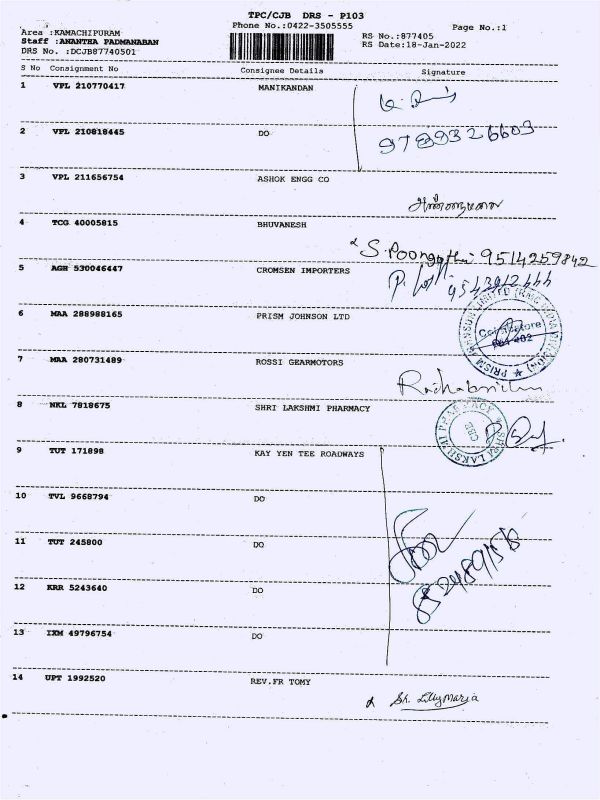 TPC/CJB DRS - P103
Phone No.:0422-3505555
Page No.:1
Area :KAMACHIPURAM
Staff :ANANTHA PADMANABAN
RS No.:877405
DRS No. :DCJB87740501
RS Date:18-Jan-2022
S No Consignment No Consignee Details Signature
1 VPL 210770417 MANIKANDAN
2 VPL 210818445 DO
9789326609
3 VPL 211656754 ASHOK ENGG CO
4 TCG 40005815 BHUVANESH
9514259842
5 AGH 530046447 CROMSEN IMPORTERS
6 MAA 288988165 PRISM JOHNSON LTD
Coimbatore
7 MAA 280731489 ROSSI GEARMOTORS
8 NKL 7818675 SHRI LAKSHMI PHARMACY
CBE
9 TUT 171898 KAY YEN TEE ROADWAYS
10 TVL 9668794 DO
11 TUT 245800 DO
12 KRR 5243640 DO
13 IXM 49796754 DO
14 UPT 1992520 REV.FR TOMY